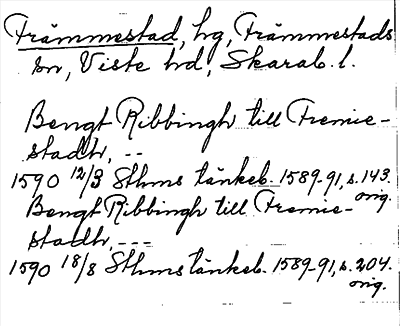 Främmestad, hg, Främmestads
sn, Viste hd, Skarab. l.
Bengt Ribbingh till Fremie-
stadh, --
1590 12/3 Sthms tänkeb. 1589-91, s. 143.
orig.
Bengt Ribbingh till Fremie-
stadh, ---
1590 18/8 Sthms tänkeb. 1589-91, s. 204.
orig.